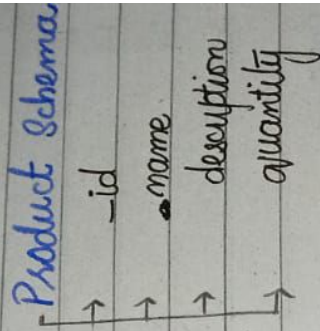 Product Schema
_id
name
description
quantity